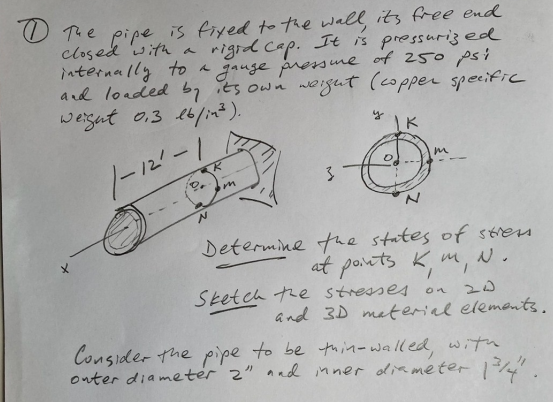 ① The pipe is fixed to the wall, its free end
closed with a rigid cap. It is pressurized
internally to a gauge pressure of 250 psi
and loaded by its own weight (copper specific
weight 0.3 lb/in³).
y
K
12'
K
O
M
N
O
M
z
N
x
Determine the states of stress
at points K, M, N.
Sketch the stresses on 2D
and 3D material elements.
Consider the pipe to be thin-walled, with
outer diameter 2" and inner diameter 1 3/4".